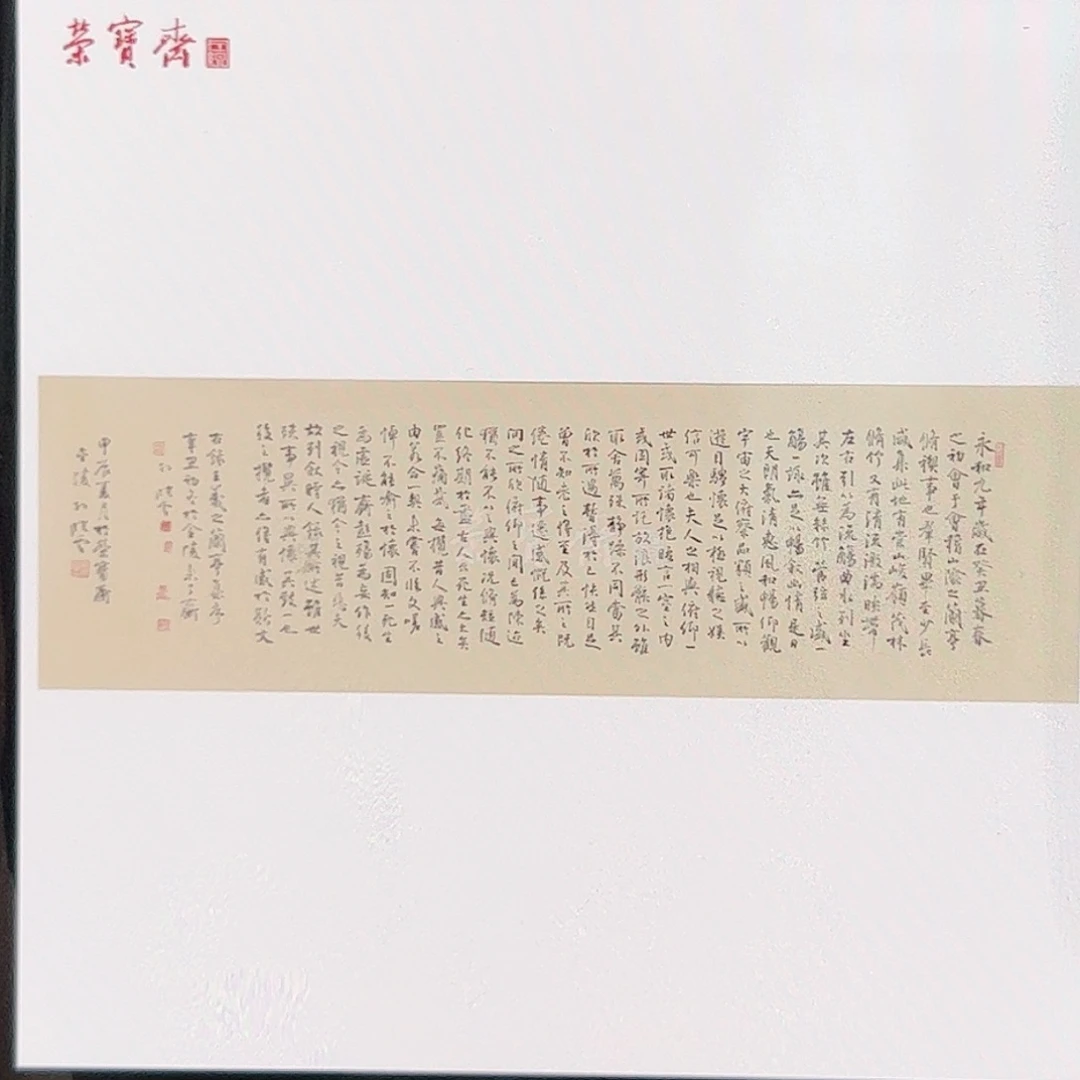 榮寶齋
永和九年歲在癸丑暮春
之初會于會稽山陰之蘭亭
脩禊事也羣賢畢至少長
咸集此地有崇山峻嶺茂林
脩竹又有清流激湍暎帶
左右引以為流觴曲水列坐
其次雖無絲竹管弦之盛一
觴一詠亦足以暢敘幽情是日
也天朗氣清惠風和暢仰觀
宇宙之大俯察品類之盛所以
遊目騁懷足以極視聽之娛
信可樂也夫人之相與俯仰一
世或取諸懷抱晤言一室之內
或因寄所託放浪形骸之外雖
取舍萬殊靜躁不同當其
欣於所遇暫得於己快然自足
曾不知老之將至及其所之既
倦情隨事遷感慨係之矣
向之所欣俯仰之間已為陳迹
猶不能不以之興懷況脩短隨
化終期於盡古人云死生亦大矣
豈不痛哉每攬昔人興感之
由若合一契未嘗不臨文嗟
悼不能喻之於懷固知一死生
為虛誕齊彭殤為妄作後
之視今亦猶今之視昔悲夫
故列敘時人錄其所述雖世
殊事異所以興懷其致一也
後之攬者亦將有感於斯文
右錄王羲之蘭亭集序
辛丑初冬於金陵
甲辰夏月於榮寶齋
金陵孫曉雲